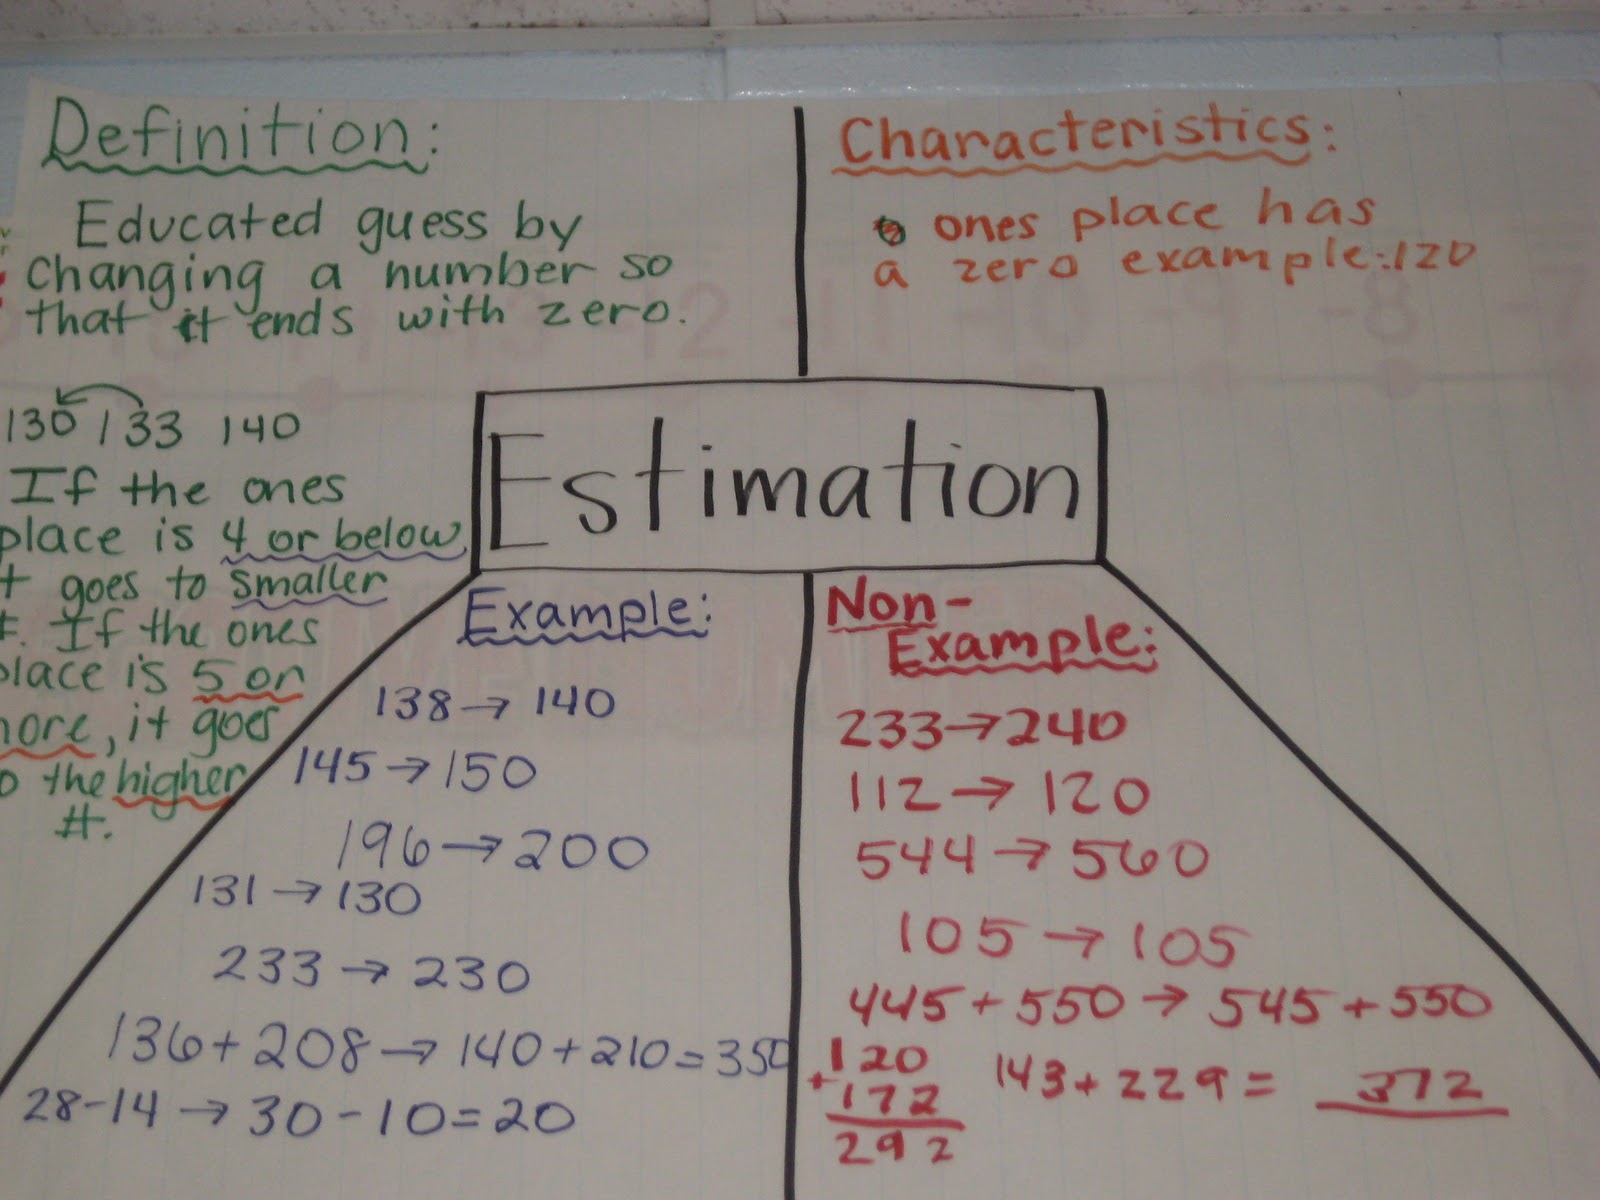 Definition:
Educated guess by
changing a number so
that it ends with zero.
130 133 140
If the ones
place is 4 or below
goes to smaller
#. If the ones
place is 5 or
more, it goes
the higher
#.
Characteristics:
ones place has
a zero example: 120
Estimation
Example:
138 → 140
145 → 150
196 → 200
131 → 130
233 → 230
136 + 208 → 140 + 210 = 350
28 - 14 → 30 - 10 = 20
Non-
Example:
233 → 240
112 → 120
544 → 560
105 → 105
445 + 550 → 545 + 550
120
+ 172
292
143 + 229 = 372
-12
-11
-9
-8
-7